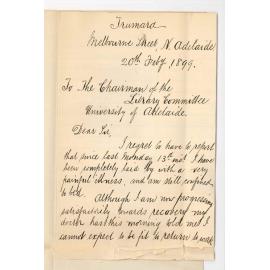 Trumara
Melbourne Street, N. Adelaide
20th Feby 1899.
To The Chairman of the
Library Committee
University of
Adelaide.
Dear Sir,
I regret to have to report
that since last Monday 13th inst I have
been completely laid by with a very
painful illness, and am still confined
to bed.
Although I am now progressing
satisfactorily towards recovery my
doctor has this morning told me I
cannot expect to be fit to return to work